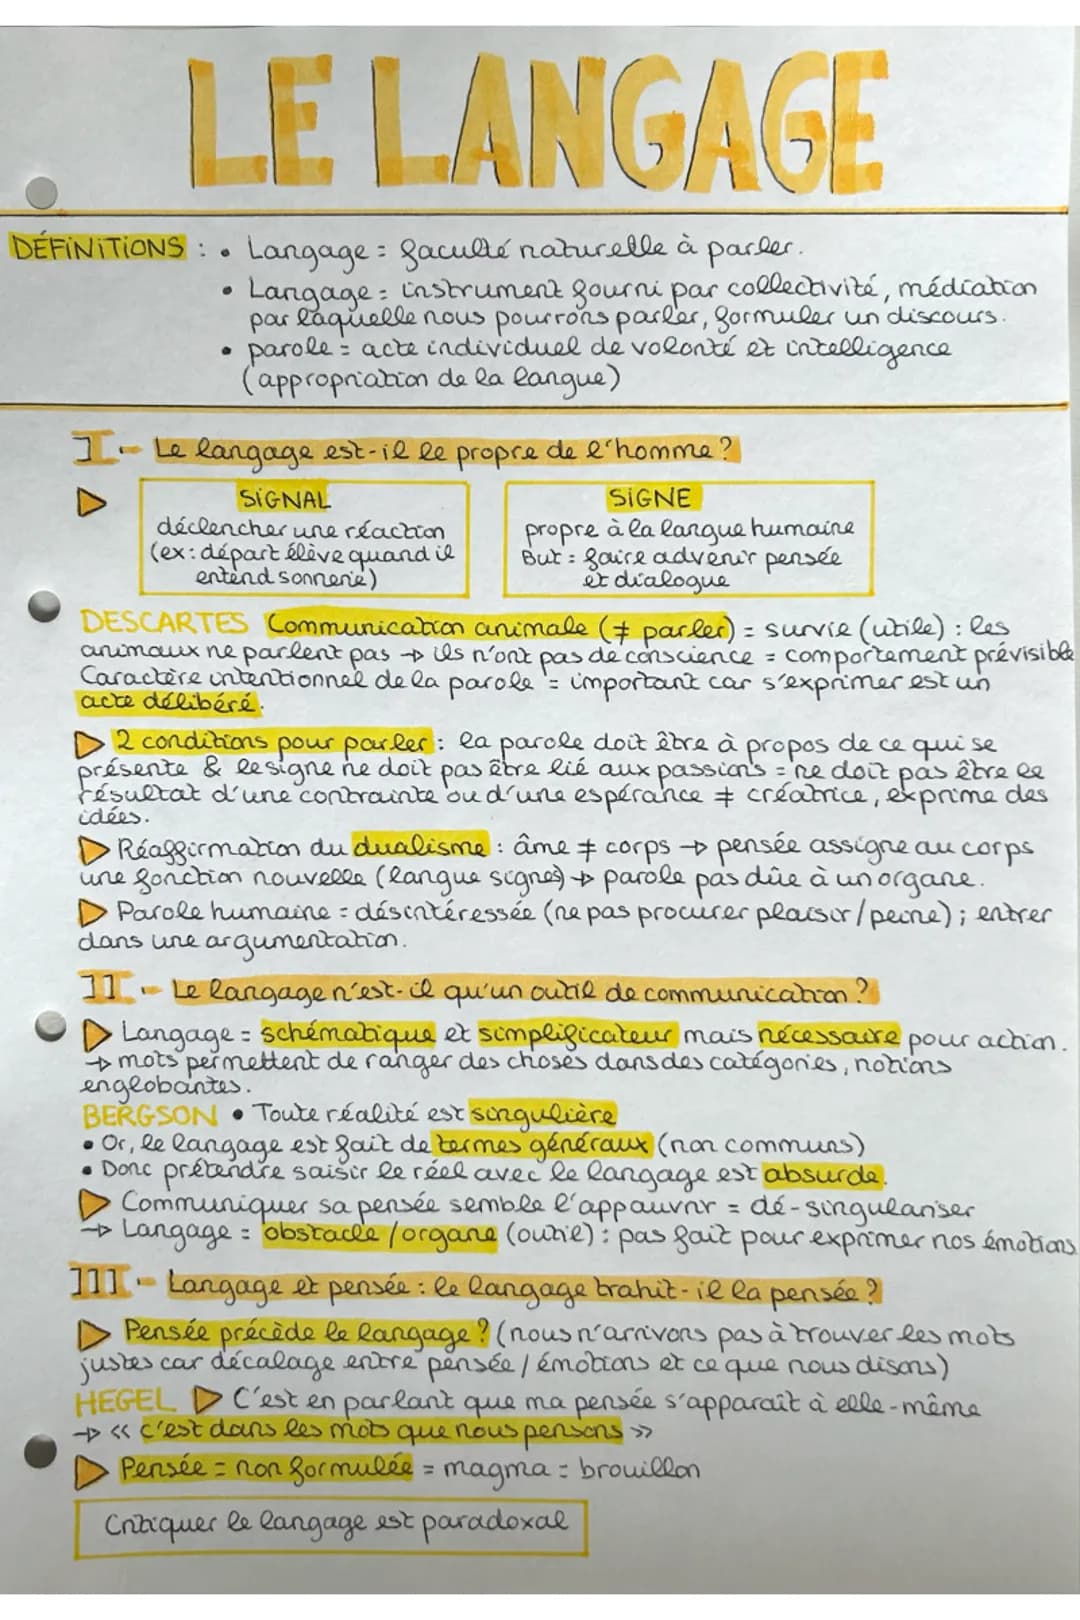 LE LANGAGE
DÉFINITIONS : • Langage = faculté naturelle à parler.
• Langage = instrument fourni par collectivité, médiation
par laquelle nous pourrons parler, formuler un discours.
• parole = acte individuel de volonté et intelligence
(appropriation de la langue)
I - Le langage est-il le propre de l'homme ?
SIGNAL
déclencher une réaction
(ex : départ élève quand il
entend sonnerie)
SIGNE
propre à la langue humaine
But : faire advenir pensée
et dialogue
DESCARTES Communication animale (≠ parler) = survie (utile) : les
animaux ne parlent pas → ils n'ont pas de conscience = comportement prévisible
Caractère intentionnel de la parole = important car s'exprimer est un
acte délibéré.
▷ 2 conditions pour parler : la parole doit être à propos de ce qui se
présente & le signe ne doit pas être lié aux passions = ne doit pas être le
résultat d'une contrainte ou d'une espérance ≠ créatrice, exprime des
idées.
▷ Réaffirmation du dualisme : âme ≠ corps → pensée assigne au corps
une fonction nouvelle (langue signes) → parole pas dûe à un organe.
▷ Parole humaine = désintéressée (ne pas procurer plaisir/peine) ; entrer
dans une argumentation.
II - Le langage n'est-il qu'un outil de communication ?
▷ Langage = schématique et simplificateur mais nécessaire pour action.
→ mots permettent de ranger des choses dans des catégories, notions
englobantes.
BERGSON • Toute réalité est singulière
• Or, le langage est fait de termes généraux (non communs)
• Donc prétendre saisir le réel avec le langage est absurde.
▷ Communiquer sa pensée semble l'appauvrir = dé-singulariser
→ Langage = obstacle/organe (outil) : pas fait pour exprimer nos émotions
III - Langage et pensée : le langage trahit-il la pensée ?
▷ Pensée précède le langage ? (nous n'arrivons pas à trouver les mots
justes car décalage entre pensée / émotions et ce que nous disons)
HEGEL ▷ C'est en parlant que ma pensée s'apparaît à elle-même
→ << c'est dans les mots que nous pensons >>
▷ Pensée = non formulée = magma = brouillon
Critiquer le langage est paradoxal